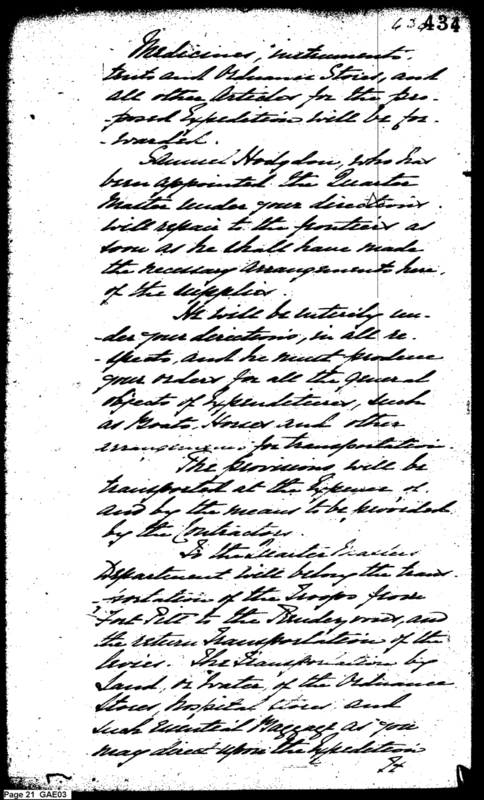 434
Medicines, instruments,
tents and Ordnance Stores, and
all other Articles for the pro-
-posed Expedition will be for-
-warded.
Samuel Hodgdon, who has
been appointed the Quarter
Master under your directions
will repair to the frontiers as
soon as he shall have made
the necessary arrangements here,
of the supplies
He will be entirely un-
der your directions, in all re-
-spects, and he must produce
your orders for all the general
objects of Expenditures, such
as Boats, Horses and other
arrangements for transportation
The provisions will be
transported at the Expence of
and by the means to be provided
by the Contractors.
To the Quarter Masters
Department will belong the trans-
-portation of the Troops from
Fort Pitt to the Rendezvous, and
the return Transportation of the
levies. The Transportation by
Land, or Water, of the Ordnance
Stores, Hospital Stores and
such Essential Baggage as you
may direct upon the Expedition
It
Page 21 GAE03